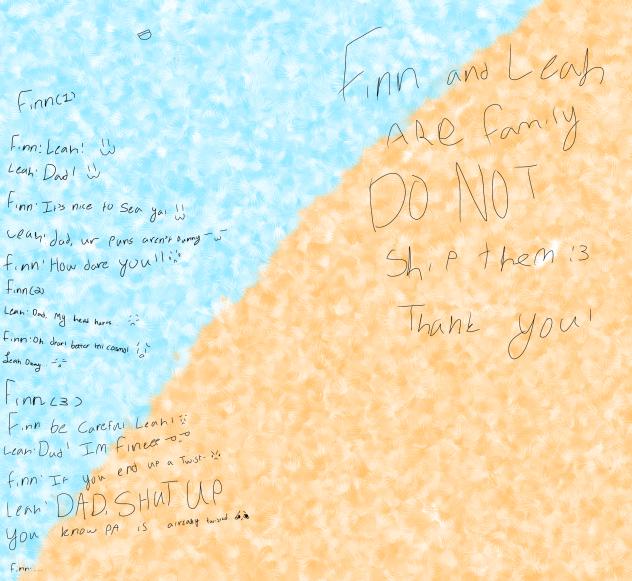 Finn(1)
Finn: Leah! :)
Leah: Dad! :)
Finn: It's nice to Sea ya! :)
Leah: dad, ur puns aren't
Finn: How dare you!!
Finn(2)
Leah: Dad. My head hurts
Finn: Oh
Leah
Finn(3)
Finn be Careful Leah!
Leah: Dad! Im Fineee
Finn: If you end up a Twist
Leah: DAD, SHUT UP
You know PA is already twisted
Finn:....
Finn and Leah
ARe family
DO NOT
Ship them :3
Thank you!